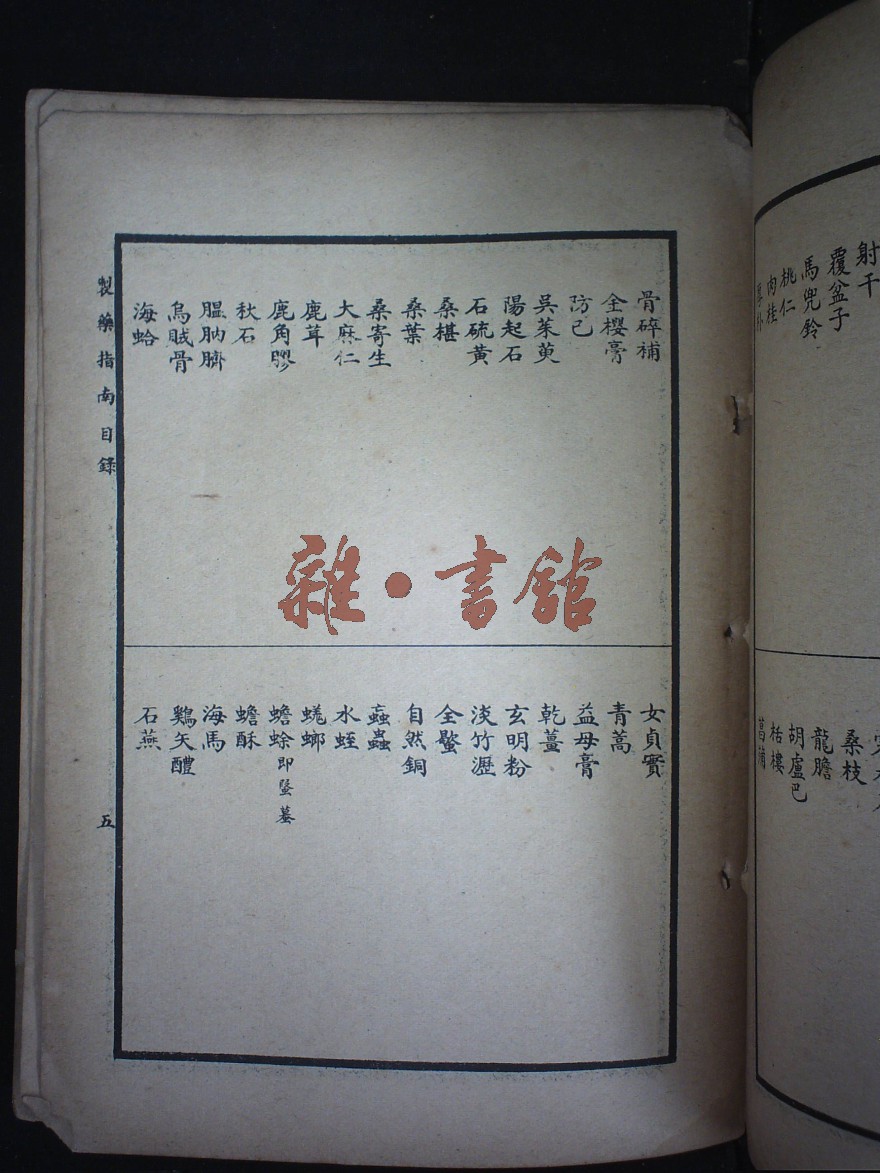 射干
覆盆子
馬兜鈴
桃仁
肉桂
桑枝
龍膽
胡盧巴
栝樓
骨碎補
金櫻膏
防己
吳茱萸
陽起石
石硫黃
桑椹
桑葉
桑寄生
大麻仁
鹿茸
鹿角膠
秋石
膃肭臍
烏賊骨
海蛤
女貞實
青蒿
益母膏
乾薑
玄明粉
淡竹瀝
自然銅
蝱蟲
水蛭
蜣螂
蟾蜍即蟼蟇
蟾酥
海馬
鷄矢醴
石燕
製藥指南目錄
五
雜·書館